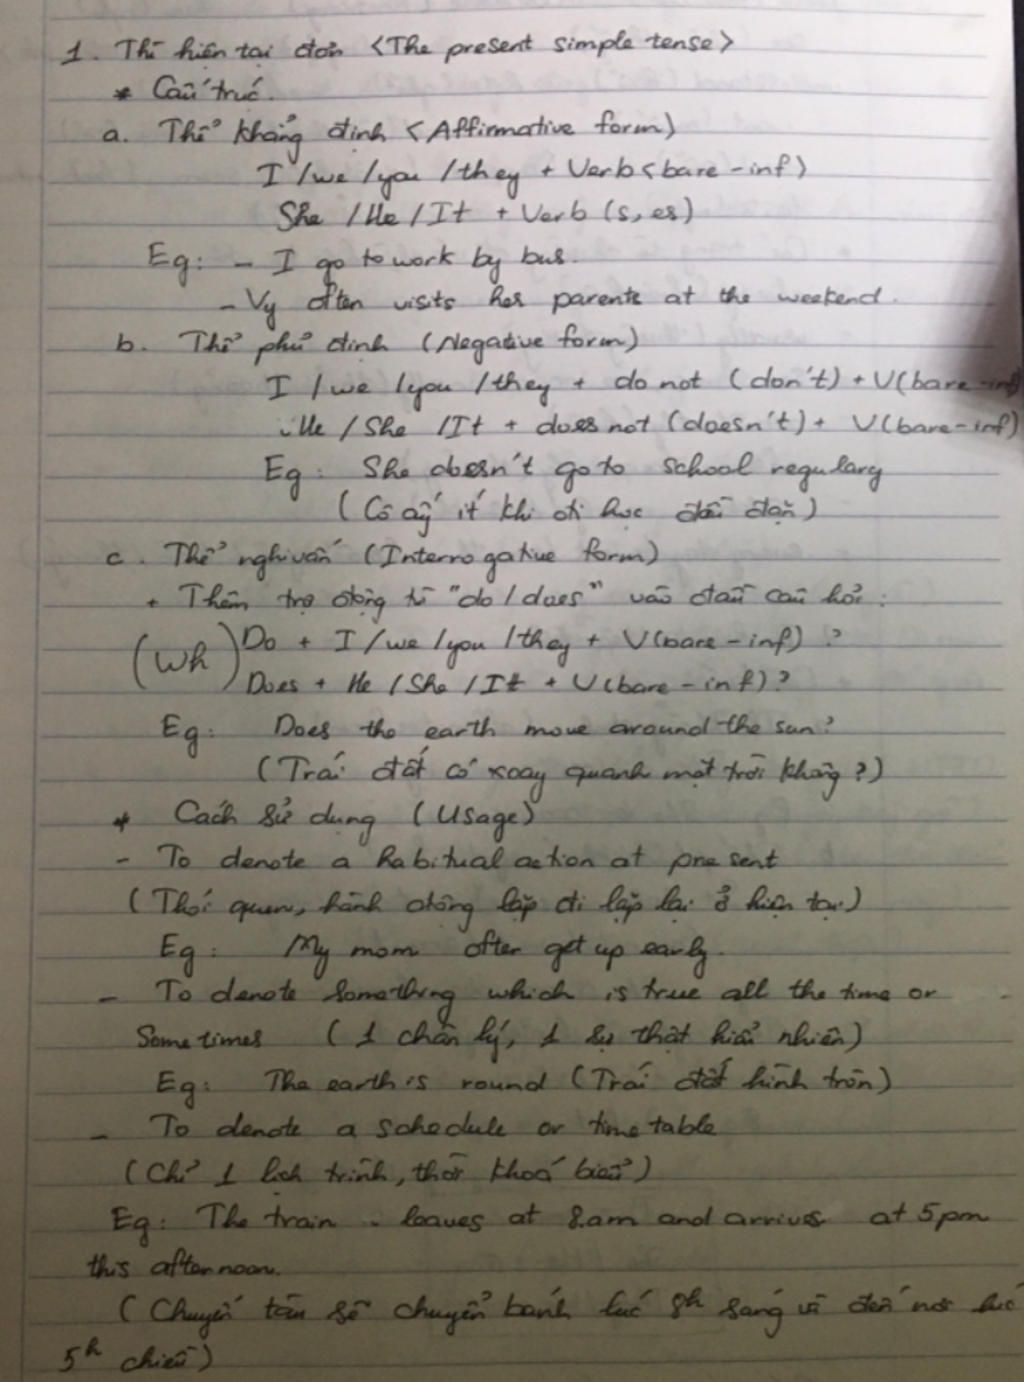 1. Thì hiện tại đơn <The present simple tense>
* Cấu trúc.
a. Thể khẳng định <Affirmative form)
I /we /you /they + Verb<bare-inf)
She /He /It + Verb (s, es)
Eg: - I go to work by bus.
- Vy often visits her parents at the weekend.
b. Thể phủ định (Negative form)
I /we /you /they + do not (don't) + V(bare-inf)
He /She /It + does not (doesn't) + V(bare-inf)
Eg: She doesn't go to school regulary
(Cô ấy ít khi đi học đều đặn)
c. Thể nghi vấn (Interrogative form)
+ Thêm trợ động từ "do/does" vào đầu câu hỏi:
(Wh) Do + I /we /you /they + V(bare-inf) ?
Does + He /She /It + V(bare-inf)?
Eg: Does the earth move around the sun?
(Trái đất có xoay quanh mặt trời không?)
* Cách sử dụng (Usage)
- To denote a habitual action at present
(Thói quen, hành động lặp đi lặp lại ở hiện tại)
Eg: My mom often get up early.
- To denote something which is true all the time or
Sometimes (1 chân lý, 1 sự thật hiển nhiên)
Eg: The earth is round (Trái đất hình tròn)
- To denote a schedule or time table
(Chỉ 1 lịch trình, thời khoá biểu)
Eg: The train leaves at 8.am and arrives at 5pm
this afternoon.
(Chuyến tàu sẽ chuyển bánh lúc 8h sáng và đến nơi lúc
5h chiều)